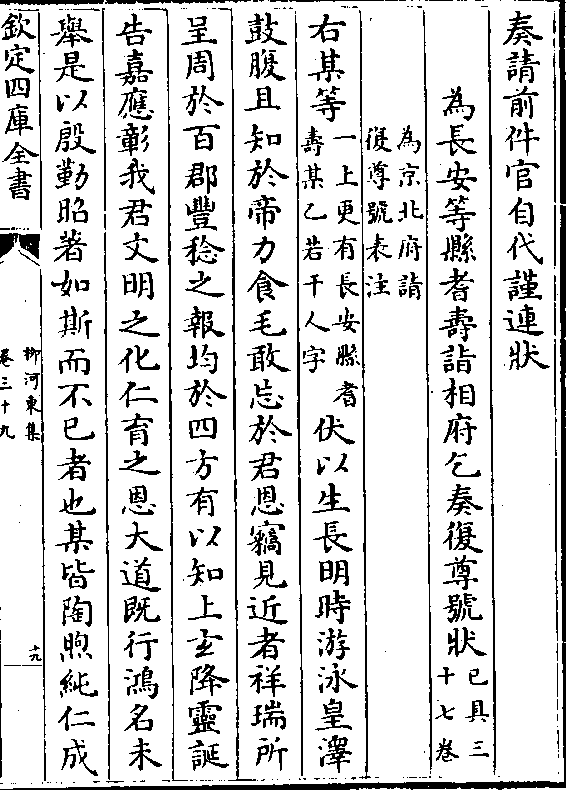 奏請前件官自代謹連狀
為長安等縣耆壽詣相府乞奏復尊號狀
已具三
十七卷
為京北府請
復尊號表注
右某等
一上更有長安縣耆
壽某乙若干人字
伏以生長明時游泳皇澤
鼓腹且知於帝力食毛敢忘於君恩竊見近者祥瑞所
呈周於百郡豐稔之報均於四方有以知上玄降靈誕
告嘉應彰我君文明之化仁育之恩大道既行鴻名未
舉是以殷勤昭著如斯而不已者也某皆陶煦純仁成
欽定四庫全書
柳河東集
卷三十九
十九